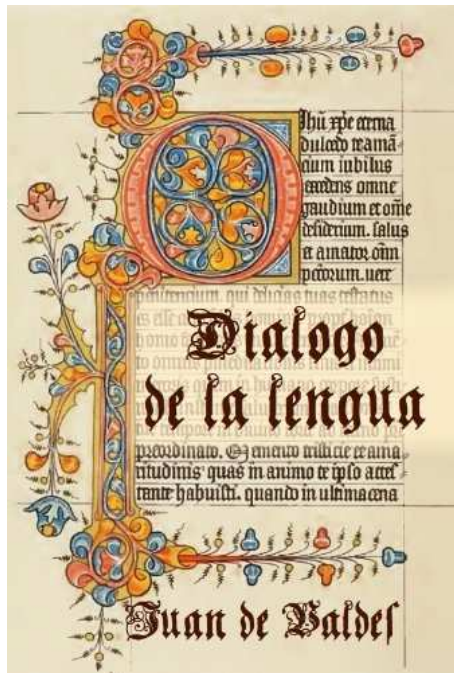 O Jhū xp̄e eterna
dulcedo te amā-
cium iubilus
excedens omne
gaudium et om̄e
desiderium. salus
et amator om̄
pctorum. uere
penitencium. qui delicias tuas testatus
Dialogo
de la lengua
preordinato. Memento tristicie et ama
ritudinis quas in animo te ipso attes
tante habuisti. quando in ultima cena
Juan de Valdes